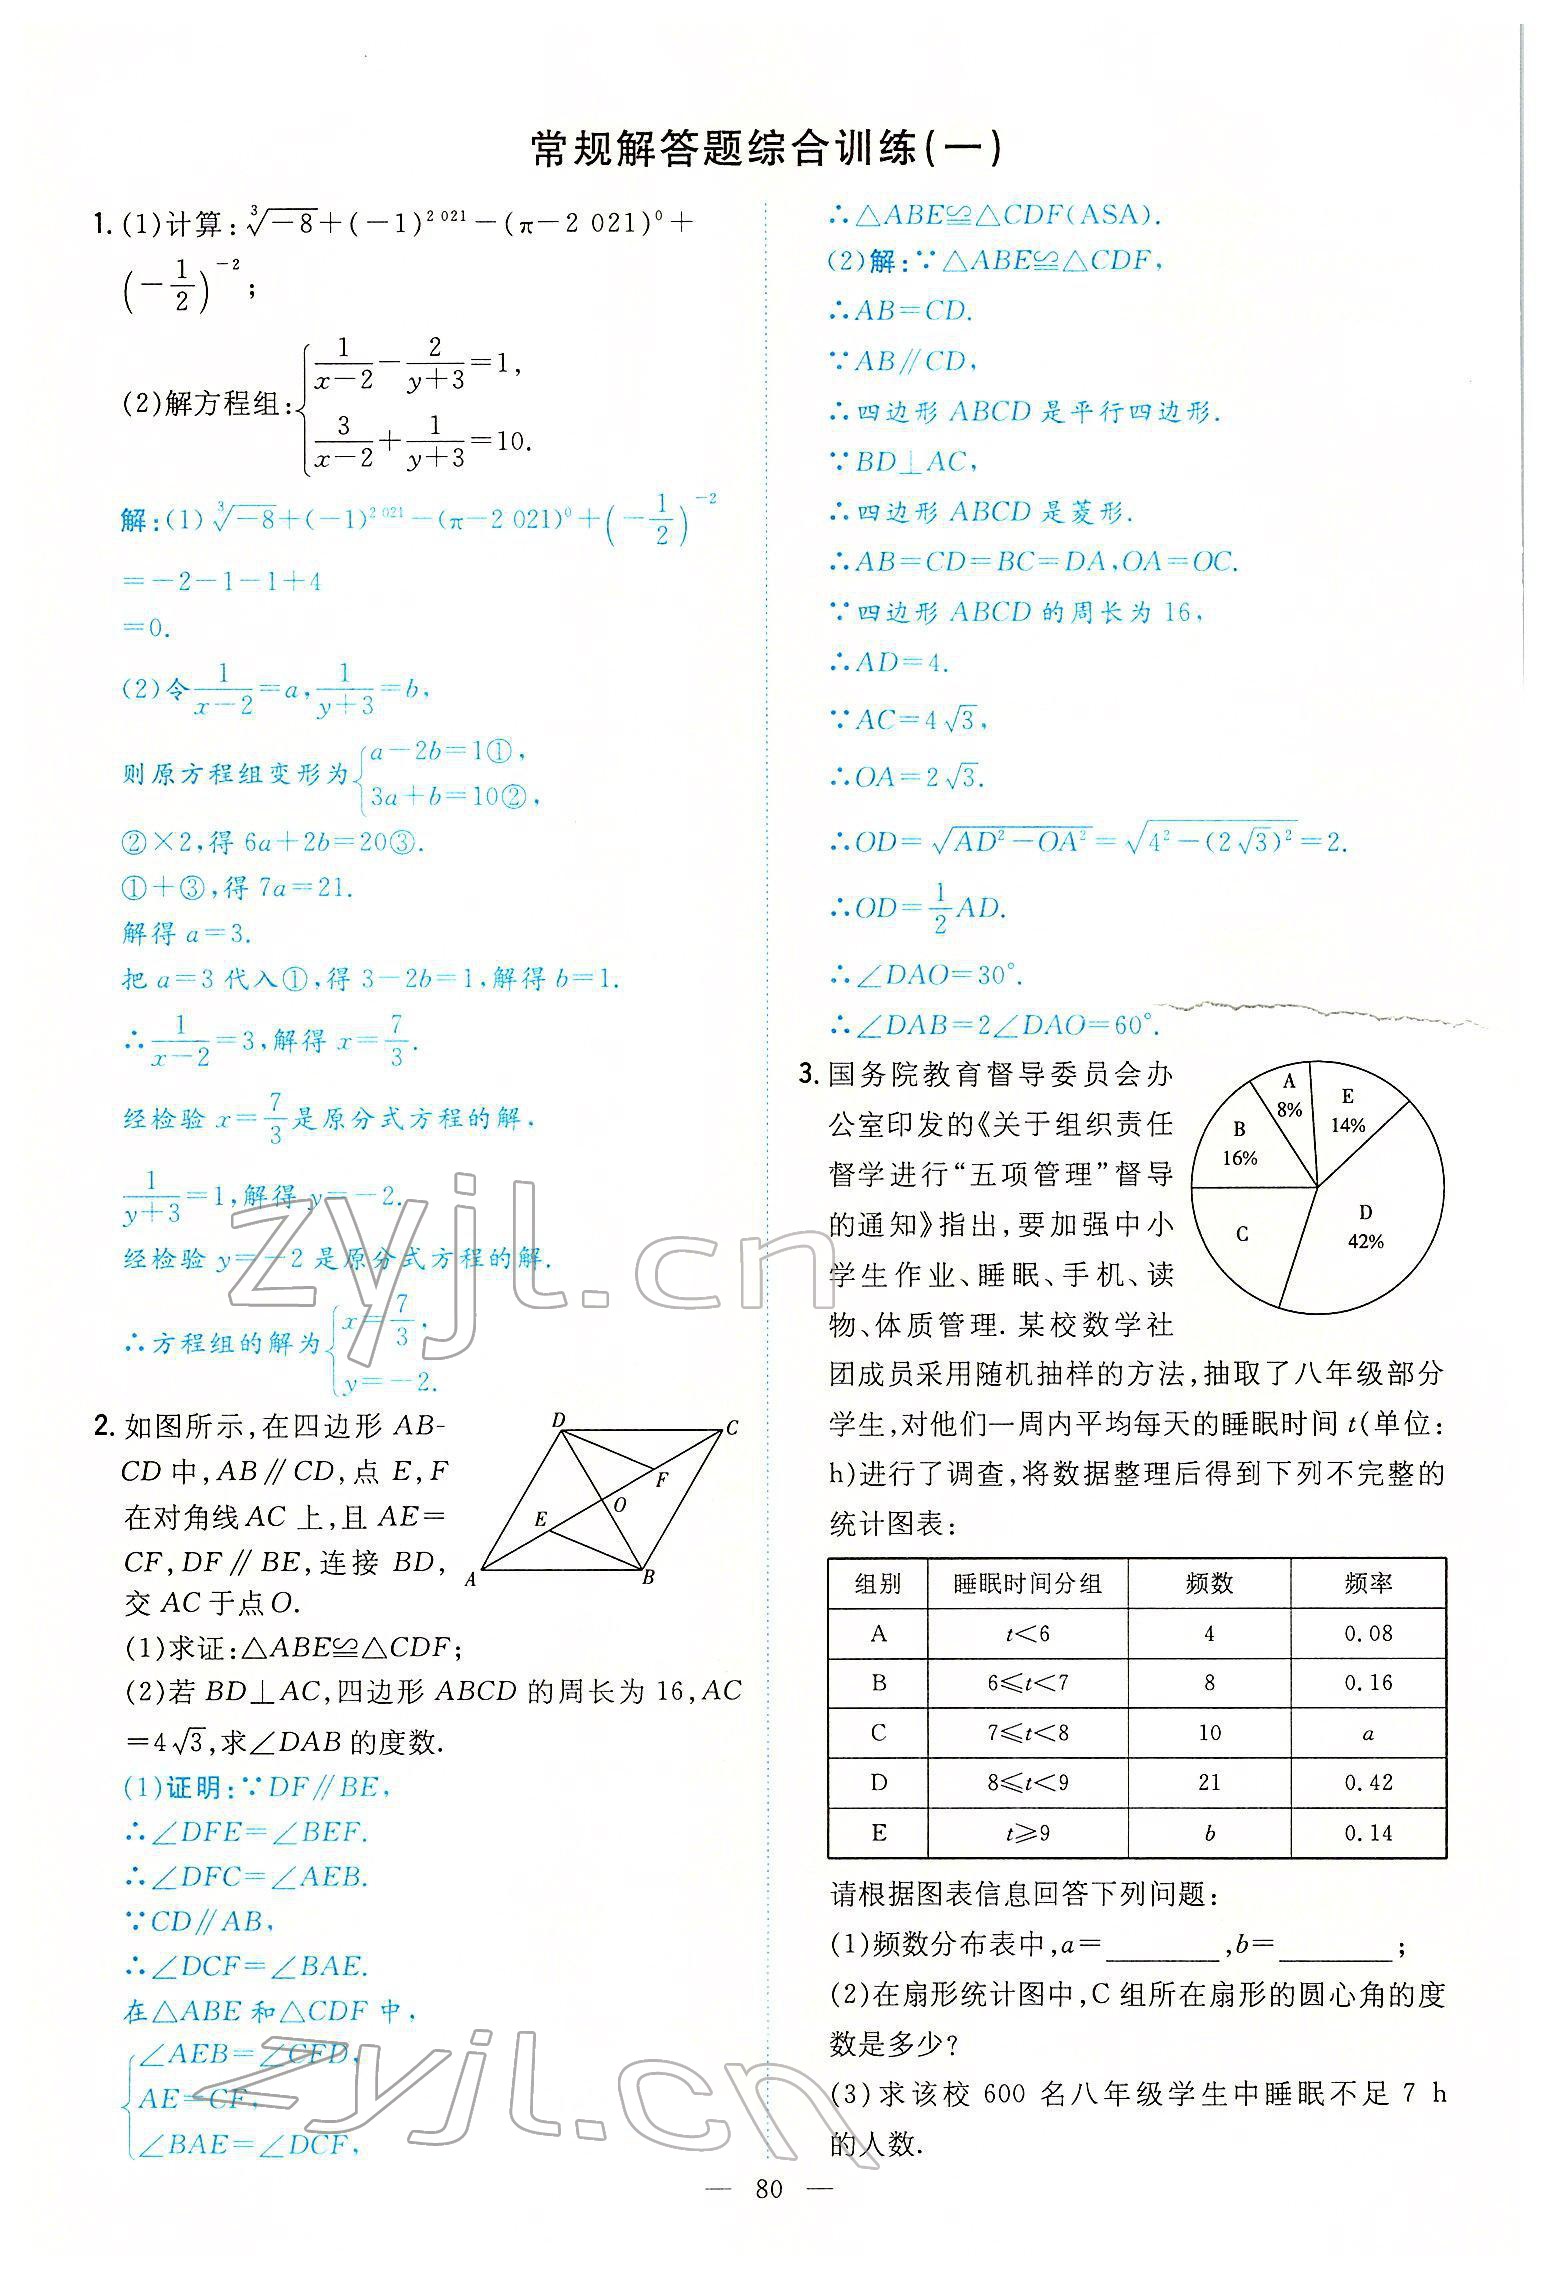 常规解答题综合训练(一)
1. (1)计算:∛-8+(-1)^2 021-(π-2 021)^0+
(-1/2)^-2;
(2)解方程组:{1/(x-2)-2/(y+3)=1,
3/(x-2)+1/(y+3)=10.
解:(1)∛-8+(-1)^2 021-(π-2 021)^0+(-1/2)^-2
=-2-1-1+4
=0.
(2)令1/(x-2)=a,1/(y+3)=b,
则原方程组变形为{a-2b=1①,
3a+b=10②,
②×2,得 6a+2b=20③.
①+③,得 7a=21.
解得 a=3.
把 a=3 代入①,得 3-2b=1,解得 b=1.
∴1/(x-2)=3,解得 x=7/3.
经检验 x=7/3是原分式方程的解,
1/(y+3)=1,解得 y=-2.
经检验 y=-2 是原分式方程的解.
∴方程组的解为{x=7/3,
y=-2.
2. 如图所示,在四边形 AB-
CD 中,AB∥CD,点 E,F
在对角线 AC 上,且 AE=
CF,DF∥BE,连接 BD,
交 AC 于点 O.
D
C
F
O
E
A
B
(1)求证:△ABE≌△CDF;
(2)若 BD⊥AC,四边形 ABCD 的周长为 16,AC
=4√3,求∠DAB 的度数.
(1)证明:∵DF∥BE,
∴∠DFE=∠BEF.
∴∠DFC=∠AEB.
∵CD∥AB,
∴∠DCF=∠BAE.
在△ABE 和△CDF 中,
{∠AEB=∠CFD,
AE=CF,
∠BAE=∠DCF,
∴△ABE≌△CDF(ASA).
(2)解:∵△ABE≌△CDF,
∴AB=CD.
∵AB∥CD,
∴四边形 ABCD 是平行四边形.
∵BD⊥AC,
∴四边形 ABCD 是菱形.
∴AB=CD=BC=DA,OA=OC.
∵四边形 ABCD 的周长为 16,
∴AD=4.
∵AC=4√3,
∴OA=2√3.
∴OD=√(AD²-OA²)=√(4²-(2√3)²)=2.
∴OD=1/2AD.
∴∠DAO=30°.
∴∠DAB=2∠DAO=60°.
3. 国务院教育督导委员会办
公室印发的《关于组织责任
督学进行“五项管理”督导
的通知》指出,要加强中小
学生作业、睡眠、手机、读
物、体质管理. 某校数学社
团成员采用随机抽样的方法,抽取了八年级部分
学生,对他们一周内平均每天的睡眠时间 t(单位:
h)进行了调查,将数据整理后得到下列不完整的
统计图表:
A
8%
E
14%
B
16%
D
42%
C
组别 睡眠时间分组 频数 频率
A t<6 4 0.08
B 6⩽t<7 8 0.16
C 7⩽t<8 10 a
D 8⩽t<9 21 0.42
E t⩾9 b 0.14
请根据图表信息回答下列问题:
(1)频数分布表中,a=________,b=________;
(2)在扇形统计图中,C 组所在扇形的圆心角的度
数是多少?
(3)求该校 600 名八年级学生中睡眠不足 7 h
的人数.
zyjl.cn
zyjl.cn
— 80 —